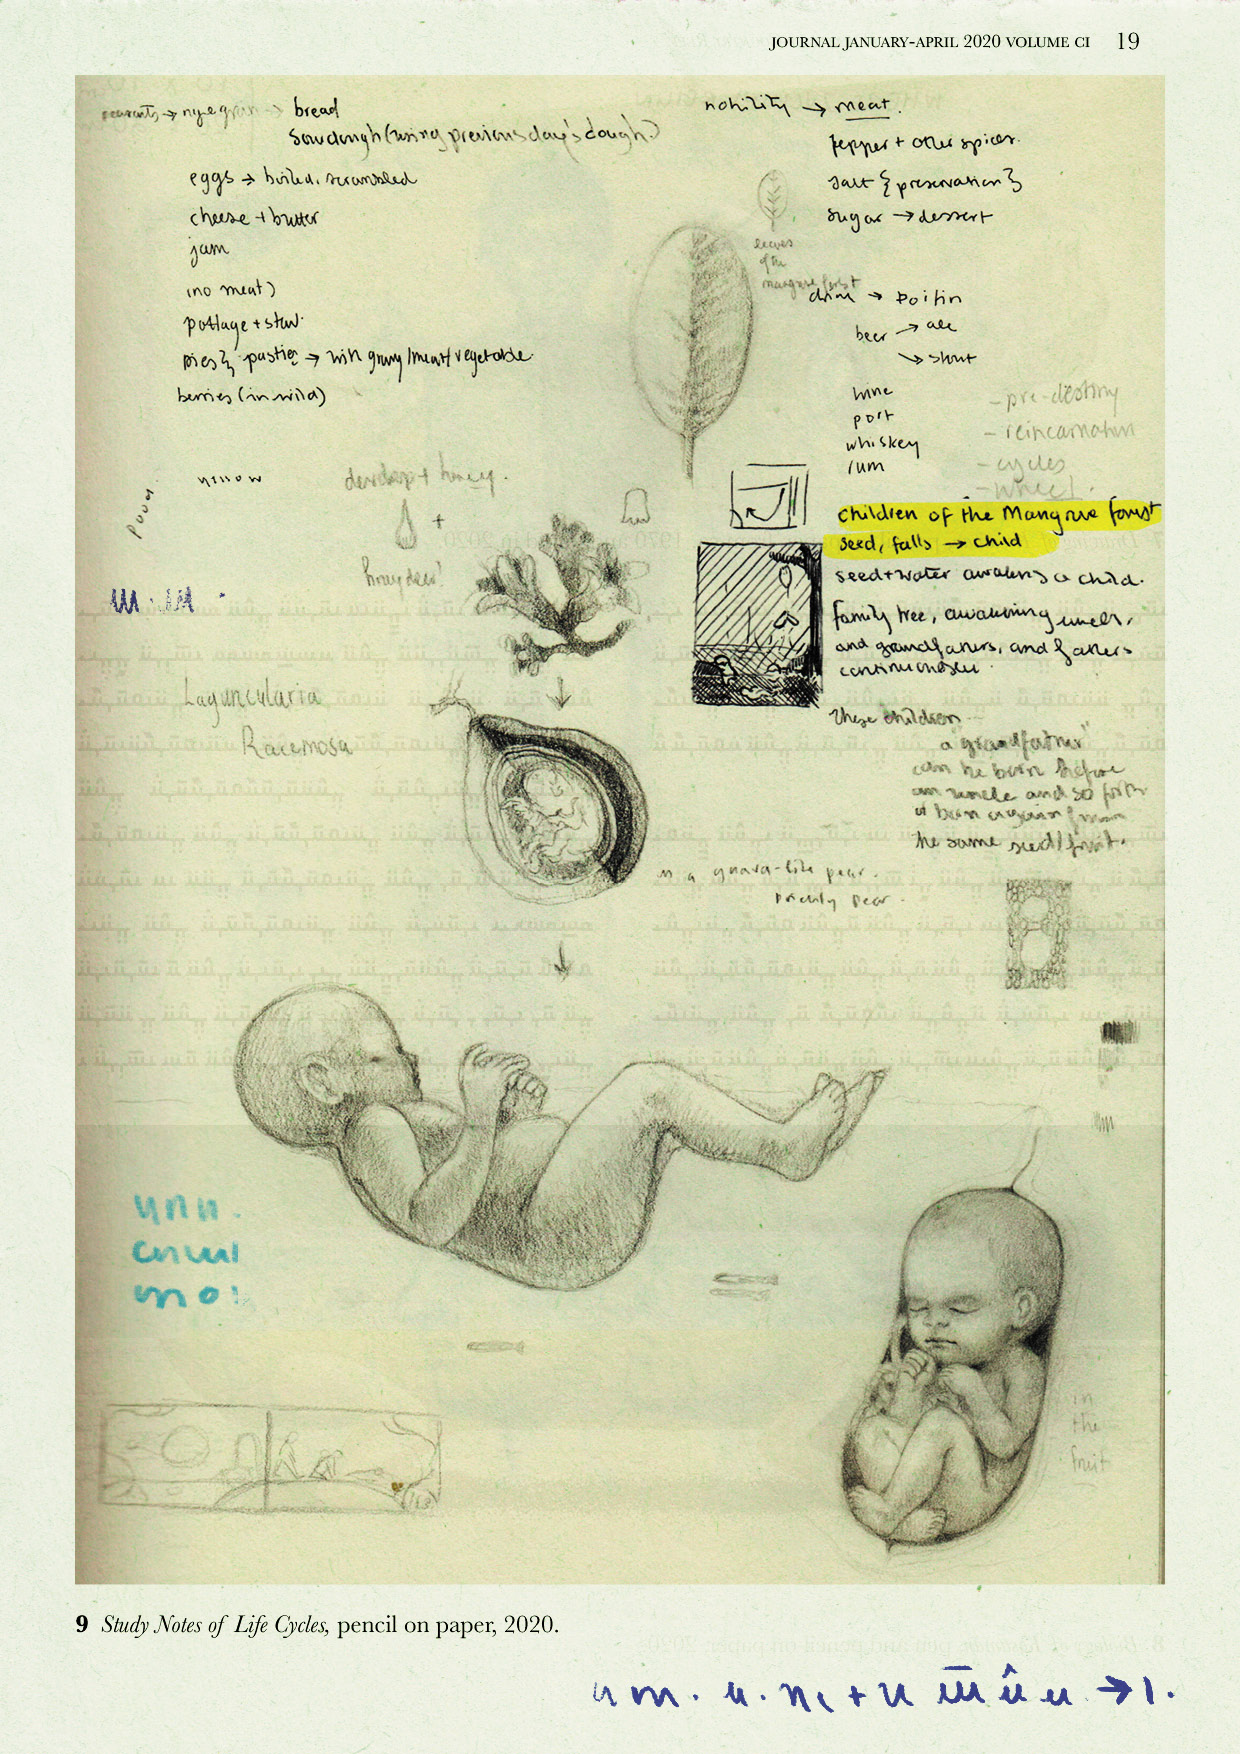 JOURNAL JANUARY-APRIL 2020 VOLUME CI 19
peasants → rye grain → bread
Sourdough (using previous day's dough)
eggs → boiled, scrambled
cheese + butter
jam
(no meat)
pottage + stew
pies } pasties → with gravy/meat/vegetable
berries (in wild)
nobility → meat.
pepper + other spices.
salt { preservation }
sugar → dessert
leaves
of the
mangrove forest
drink → poitin
beer → ale
→ stout
wine
port
whiskey
rum
- pre-destiny
- reincarnation
- cycles
- wheel.
dewdrop + honey.
+
honeydew?
Laguncularia
Racemosa
children of the Mangrove forest
seed, falls → child
seed + water awakens a child.
family tree, awakening uncles,
and grandfathers, and fathers
continuously.
these children
a "grandfather"
can be born before
an uncle and so forth
born again from
the same seed/fruit.
a guava-like pear.
prickly pear.
in
the
fruit
9 Study Notes of Life Cycles, pencil on paper, 2020.